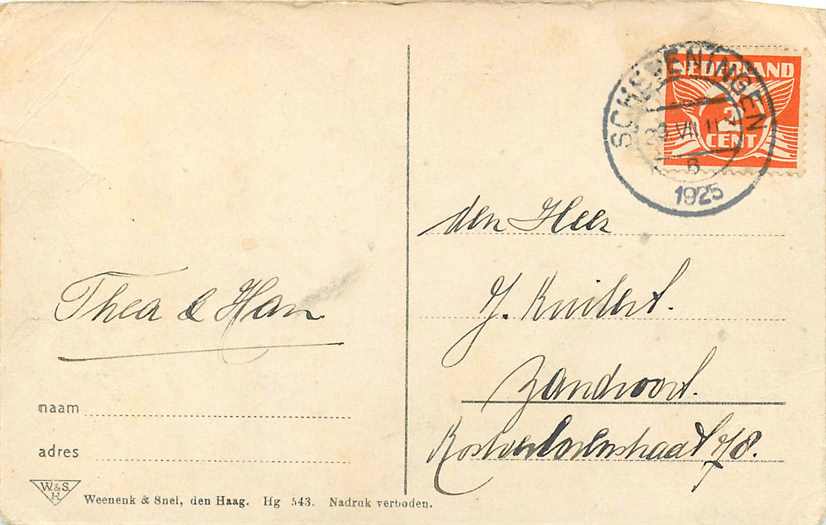 Thea & Han
naam
adres
W.&S.
H
Weenenk & Snel, den Haag. Hg 543. Nadruk verboden.
NEDERLAND
2
CENT
SCHEVENINGEN
VII
6
1925
den Heer
J. Kuilert.
Zandvoort.
Kostverlorenstraat 78.